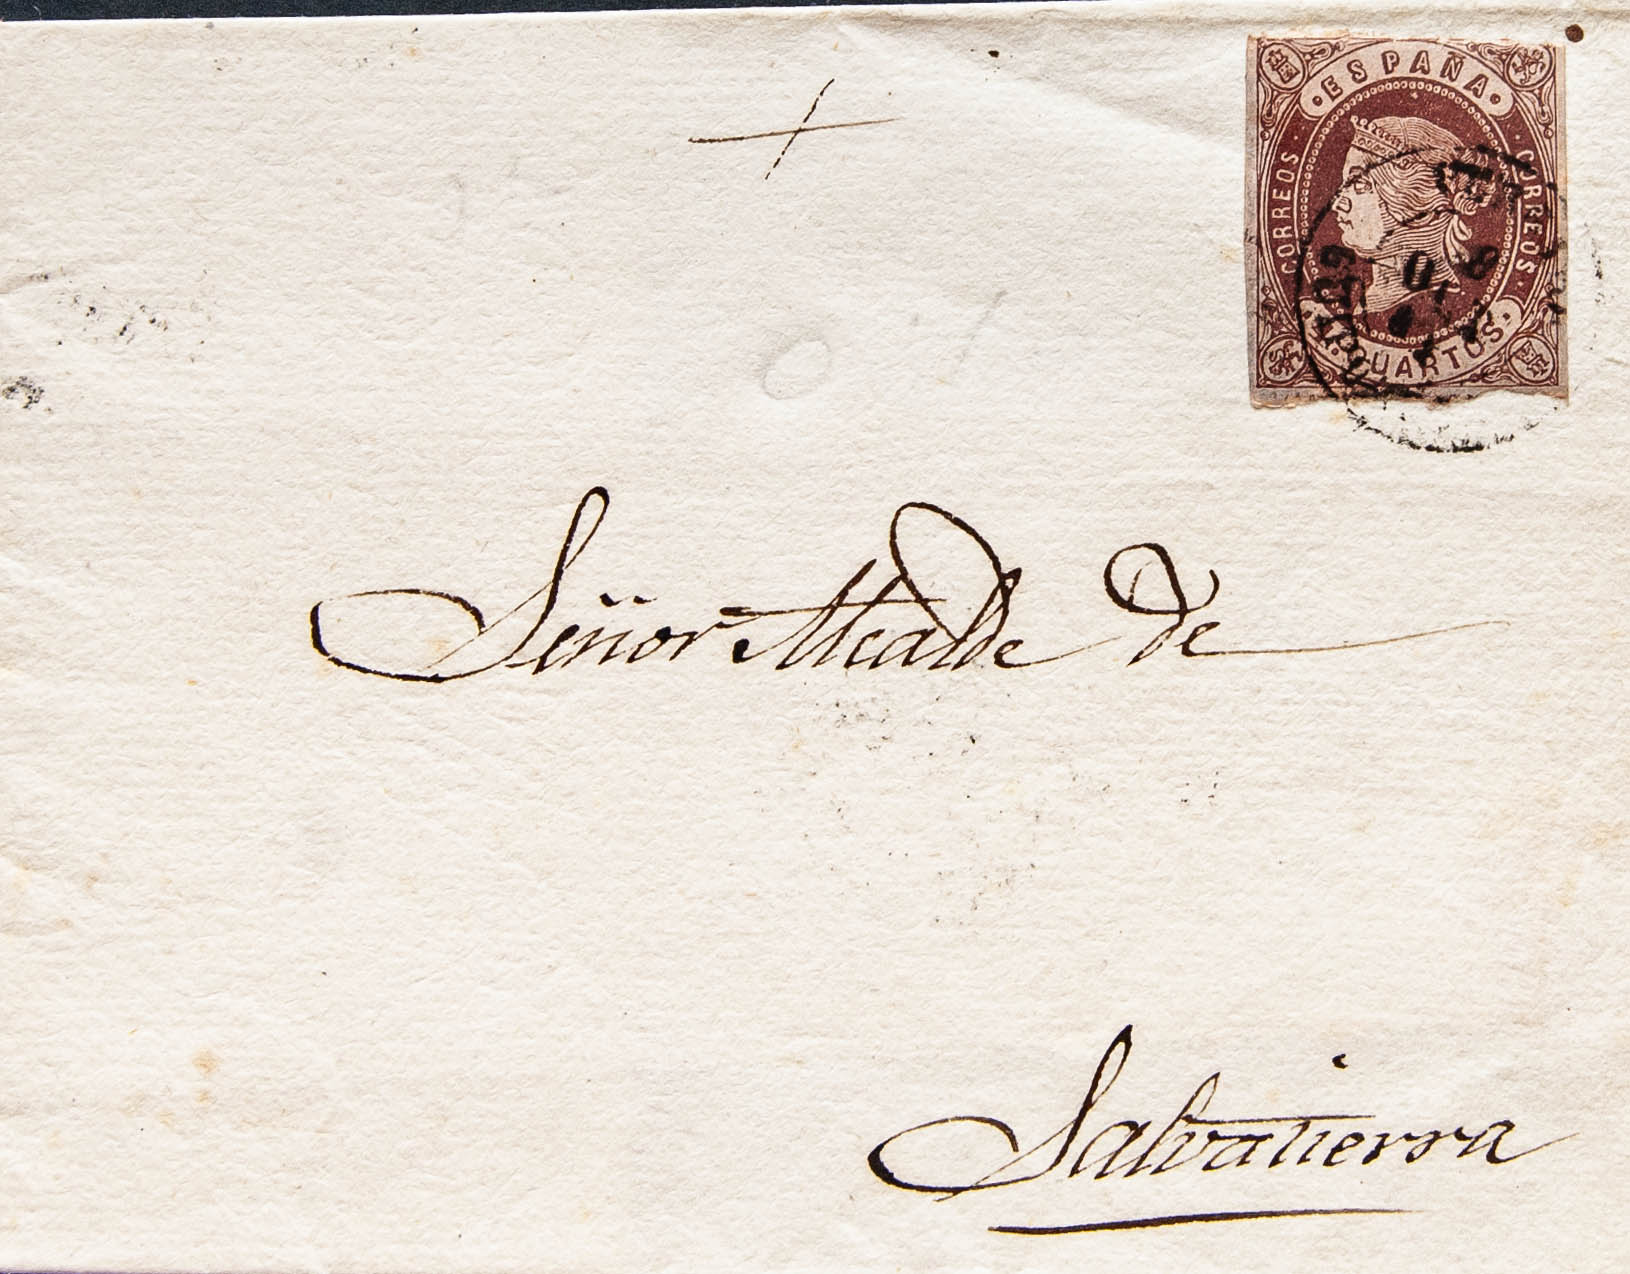 ESPAÑA
CORREOS CORREOS
CUARTOS
Señor Alcalde de
Salvatierra